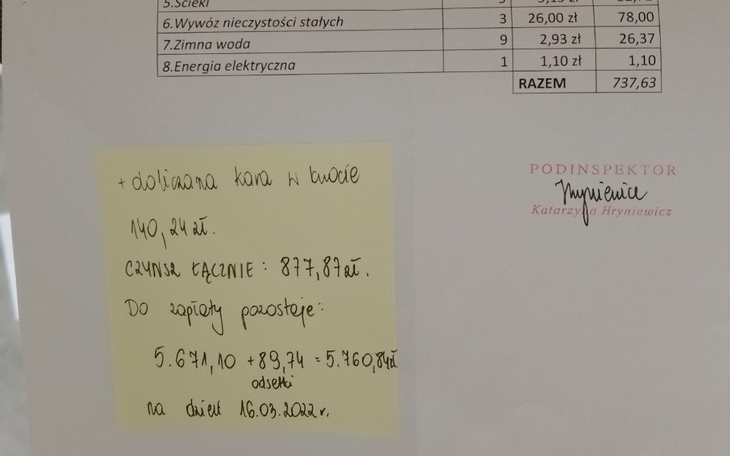 5.Ścieki
6.Wywóz nieczystości stałych 3 26,00 zł 78,00
7.Zimna woda 9 2,93 zł 26,37
8.Energia elektryczna 1 1,10 zł 1,10
RAZEM 737,63
+ doliczana kara w kwocie
140,24 zł.
CZYNSZ ŁĄCZNIE : 877,87 zł.
Do zapłaty pozostaje:
5.671,10 + 89,74 = 5.760,84 zł
odsetki
na dzień 16.03.2022 r.
PODINSPEKTOR
Hryniewicz
Katarzyna Hryniewicz